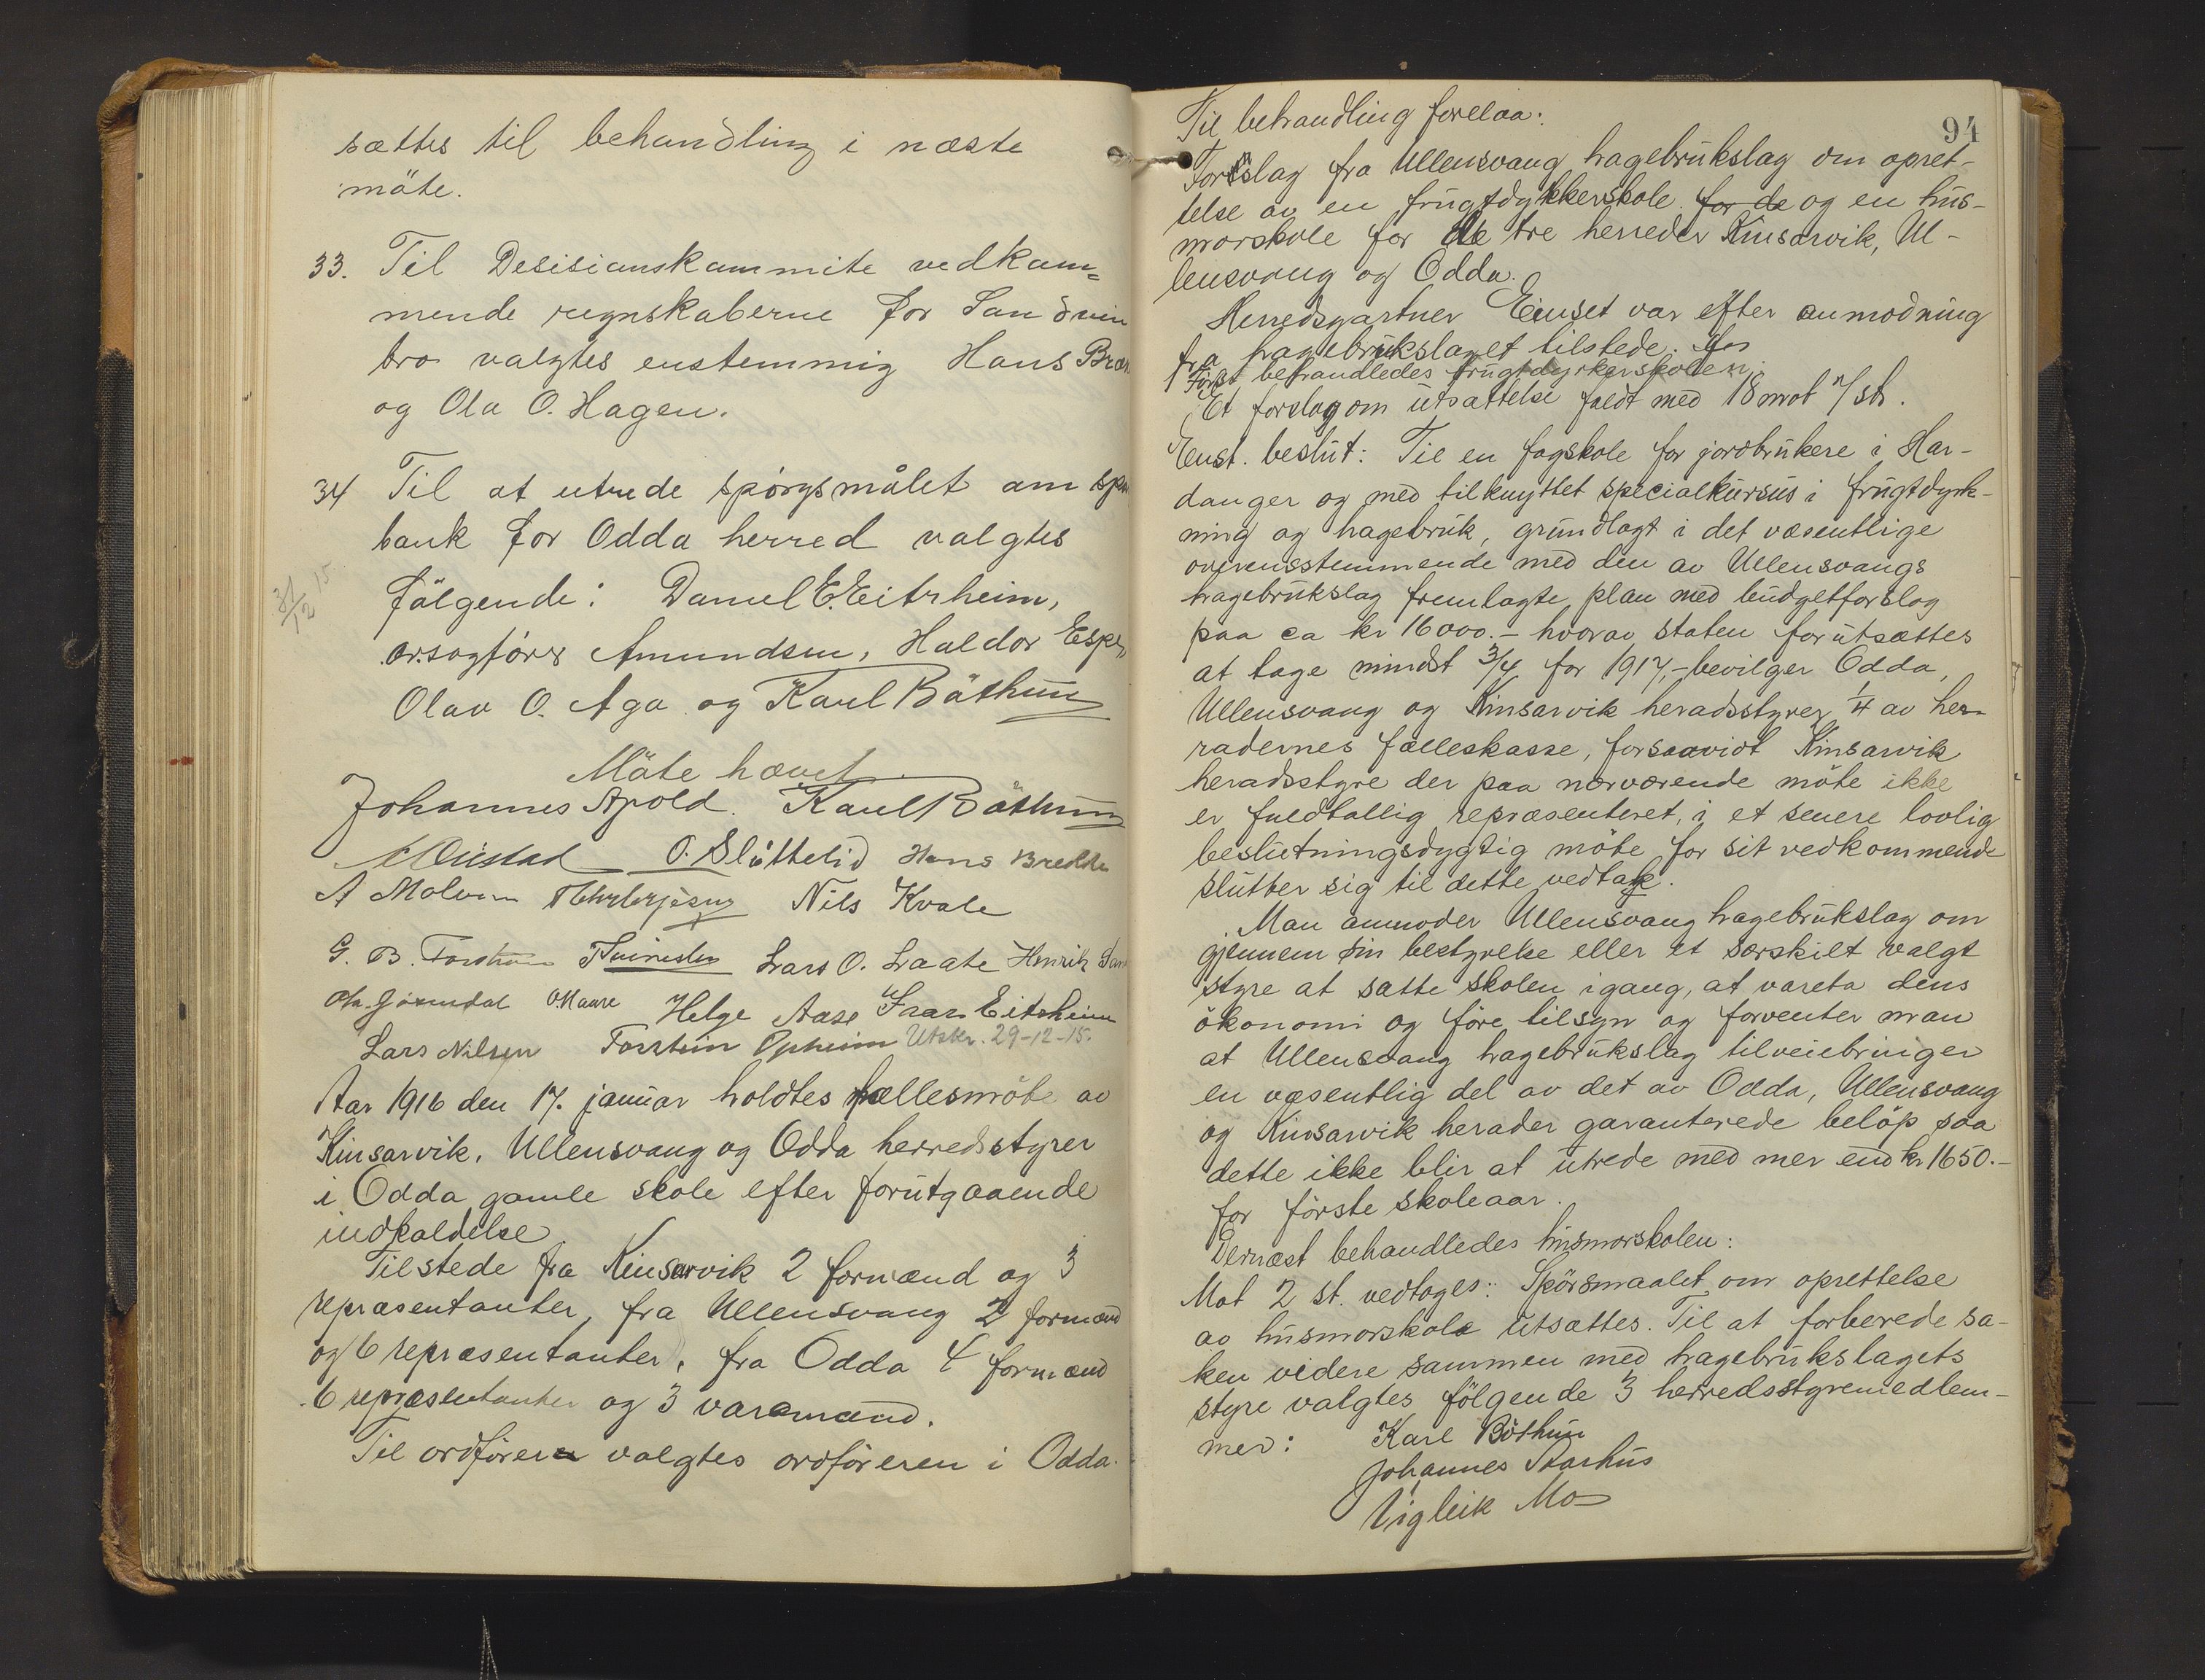 sættes til behandling i næste
möte.
33. Til Desisionskommite vedkom=
mende regnskaberne for Sandvin
bro valgtes enstemmig Hans
og Ola O. Hagen.
34 Til at utrede spörgsmålet om
bank for Odda herred valgtes
fölgende: Daniel E. Eitrheim,
31/12 15
o.r.sagförer Amundsen, Haldor
Olav O. Aga og Karl Böthun
Möte hævet.
Johannes Apold. Karl Böthun
O. Slåttelid Hans
A Nils Kvale
G. B. Lars O. Laate Henrik
O. Maare Helge Aase Isar Eitrheim
Lars Nilsen Torstein Opheim Utskr. 29-12-15.
Aar 1916 den 17. januar holdtes fællesmöte av
Kinsarvik, Ullensvang og Odda herredsstyrer
i Odda gamle skole efter forutgaaende
indkaldelse
Tilstede fra Kinsarvik 2 formænd og 3
repræsentanter, fra Ullensvang 2 formænd
og 6 repræsentanter, fra Odda 4 formænd
6 repræsentanter og 3 varamænd.
Til ordförer valgtes ordföreren i Odda.
94
Til behandling forelaa:
Forslag fra Ullensvang hagebrukslag om opret-
telse av en frugtdykkerskole for de og en hus-
morskole for de tre herreder Kinsarvik, Ul-
lensvang og Odda.
Herredsgartner Einset var efter anmodning
fra hagebrukslaget tilstede.
Först behandledes frugtdyrkerskolen
Et forslag om utsættelse faldt med 18 mot st.
Enst. beslut: Til en fagskole for jordbrukere i Har-
danger og med tilknyttet specialkursus i frugtdyrk-
ning og hagebruk, grundlagt i det væsentlige
overensstemmende med den av Ullensvangs
hagebrukslag fremlagte plan med budgetforslag
paa ca kr 16000.- hvorav staten forutsættes
at tage mindst 3/4 for 1917,- bevilger Odda,
Ullensvang og Kinsarvik heradsstyrer 1/4 av he-
radernes fælleskasse, forsaavidt Kinsarvik
heradsstyre der paa nærværende möte ikke
er fuldtallig repræsenteret, i et senere lovlig
beslutningsdygtig möte for sit vedkommende
slutter sig til dette vedtak.
Man anmoder Ullensvang hagebrukslag om
gjennem sin bestyrelse eller et særskilt valgt
styre at sætte skolen igang, at vareta dens
ökonomi og före tilsyn og forventer man
at Ullensvang hagebrukslag tilveiebringer
en væsentlig del av det av Odda, Ullensvang
og Kinsarvik herader garanterede belöp saa
dette ikke blir at utrede med mer end kr. 1650.-
for förste skoleaar.
Dernæst behandledes husmorskolen:
Mot 2 st. vedtoges: Spörsmaalet om oprettelse
av husmorskole utsættes. Til at forberede sa-
ken videre sammen med hagebrukslagets
styre valgtes fölgende 3 herredsstyremedlem-
mer: Karl Böthun
Johannes Aarhus
Vigleik Mo